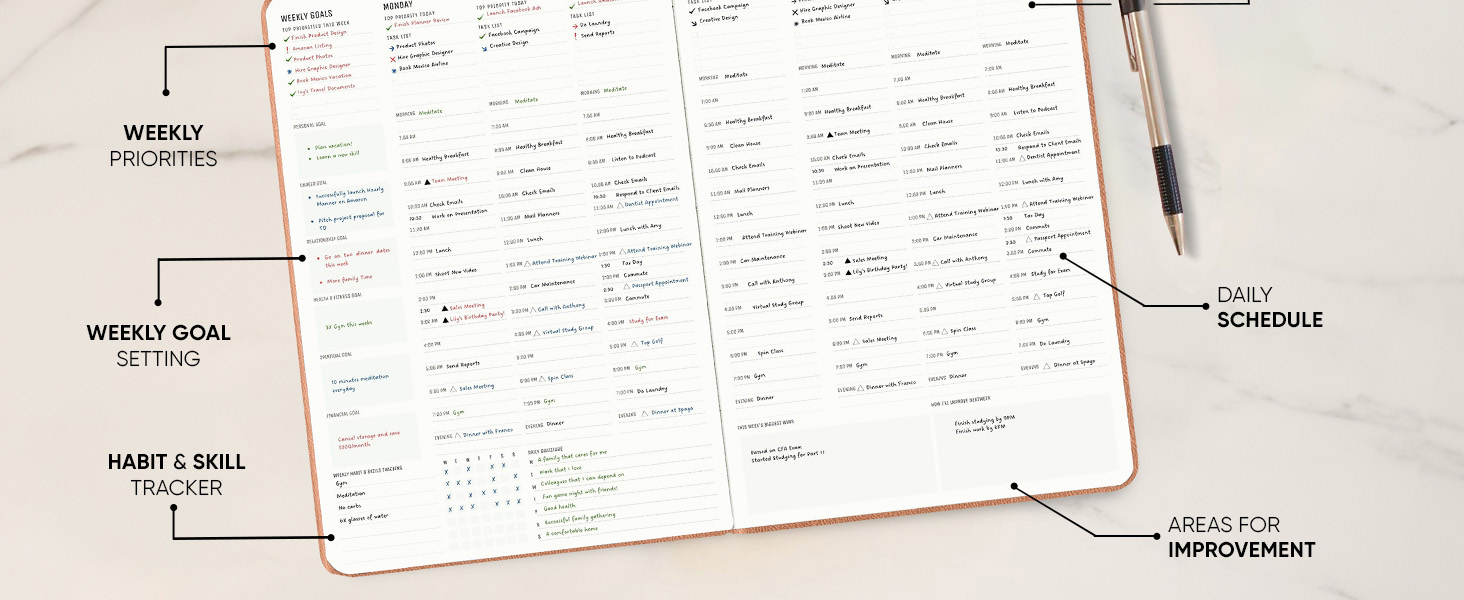 WEEKLY GOALS
TOP PRIORITIES THIS WEEK
Finish Product Design
Amazon Listing
Product Photos
Hire Graphic Designer
Book Mexico Vacation
Ivy's Travel Documents
PERSONAL GOAL
Plan vacation!
Learn a new skill
CAREER GOAL
Successfully launch Hourly
Planner on Amazon
Pitch project proposal for
TD
RELATIONSHIP GOAL
Go on two dinner dates
this week
More family time
HEALTH & FITNESS GOAL
3x Gym this week
10 minutes meditation
everyday
FINANCIAL GOAL
Cancel storage and save
WEEKLY HABIT & SKILLS TRACKING
Gym
Meditation
No carbs
6x glasses of water
M T W T F S S
MONDAY
TOP PRIORITY TODAY
Finish Planner Review
TASK LIST
Product Photos
Hire Graphic Designer
Book Mexico Airline
MORNING Meditate
7:00 AM
8:00 AM Healthy Breakfast
9:00 AM Team Meeting
10:00 AM Check Emails
10:30 Work on Presentation
11:00 AM
12:00 PM Lunch
1:00 PM Shoot New Video
2:00 PM
2:30 Sales Meeting
3:00 PM Lily's Birthday Party!
4:00 PM
5:00 PM Send Reports
6:00 PM Sales Meeting
7:00 PM Gym
EVENING Dinner with Franco
TOP PRIORITY TODAY
Launch Facebook Ads
TASK LIST
Facebook Campaign
Creative Design
MORNING Meditate
7:00 AM
8:00 AM Healthy Breakfast
9:00 AM Clean House
10:00 AM Check Emails
11:00 AM Mail Planners
12:00 PM Lunch
1:00 PM Attend Training Webinar
2:00 PM Car Maintenance
3:00 PM Call with Anthony
4:00 PM Virtual Study Group
5:00 PM
6:00 PM Spin Class
7:00 PM Gym
EVENING Dinner
TASK LIST
Do Laundry
Send Reports
MORNING Meditate
7:00 AM
8:00 AM Healthy Breakfast
9:00 AM Listen to Podcast
10:00 AM Check Emails
10:30 Respond to Client Emails
11:00 AM Dentist Appointment
12:00 PM Lunch with Amy
1:00 PM Attend Training Webinar
1:30 Tax Day
2:00 PM Commute
2:30 Passport Appointment
3:00 PM Commute
4:00 PM Study for Exam
5:00 PM Top Golf
6:00 PM Gym
7:00 PM Do Laundry
EVENING Dinner at Spago
DAILY GRATITUDE
M A family that cares for me
T Work that I love
W Colleagues that I can depend on
T Fun game night with friends!
F Good health
S Successful family gathering
S A comfortable home
Facebook Campaign
Creative Design
MORNING Meditate
7:00 AM
8:00 AM Healthy Breakfast
9:00 AM Clean House
10:00 AM Check Emails
11:00 AM Mail Planners
12:00 PM Lunch
1:00 PM Attend Training Webinar
2:00 PM Car Maintenance
3:00 PM Call with Anthony
4:00 PM Virtual Study Group
5:00 PM
6:00 PM Spin Class
7:00 PM Gym
EVENING Dinner
Hire Graphic Designer
Book Mexico Airline
MORNING Meditate
7:00 AM
8:00 AM Healthy Breakfast
9:00 AM Team Meeting
10:00 AM Check Emails
10:30 Work on Presentation
11:00 AM
12:00 PM Lunch
1:00 PM Shoot New Video
2:00 PM
2:30 Sales Meeting
3:00 PM Lily's Birthday Party!
4:00 PM
5:00 PM Send Reports
6:00 PM Sales Meeting
7:00 PM Gym
EVENING Dinner with Franco
MORNING Meditate
7:00 AM
8:00 AM Healthy Breakfast
9:00 AM Clean House
10:00 AM Check Emails
11:00 AM Mail Planners
12:00 PM Lunch
1:00 PM Attend Training Webinar
2:00 PM Car Maintenance
3:00 PM Call with Anthony
4:00 PM Virtual Study Group
5:00 PM
6:00 PM Spin Class
7:00 PM Gym
EVENING Dinner
MORNING Meditate
7:00 AM
8:00 AM Healthy Breakfast
9:00 AM Listen to Podcast
10:00 AM Check Emails
10:30 Respond to Client Emails
11:00 AM Dentist Appointment
12:00 PM Lunch with Amy
1:00 PM Attend Training Webinar
1:30 Tax Day
2:00 PM Commute
2:30 Passport Appointment
3:00 PM Commute
4:00 PM Study for Exam
5:00 PM Top Golf
6:00 PM Gym
7:00 PM Do Laundry
EVENING Dinner at Spago
THIS WEEK'S BIGGEST WINS
Passed on CFA Exam
Started Studying for Part II
HOW I'LL IMPROVE NEXT WEEK
Finish studying by 9PM
Finish work by 6PM
WEEKLY
PRIORITIES
WEEKLY GOAL
SETTING
HABIT & SKILL
TRACKER
DAILY
SCHEDULE
AREAS FOR
IMPROVEMENT